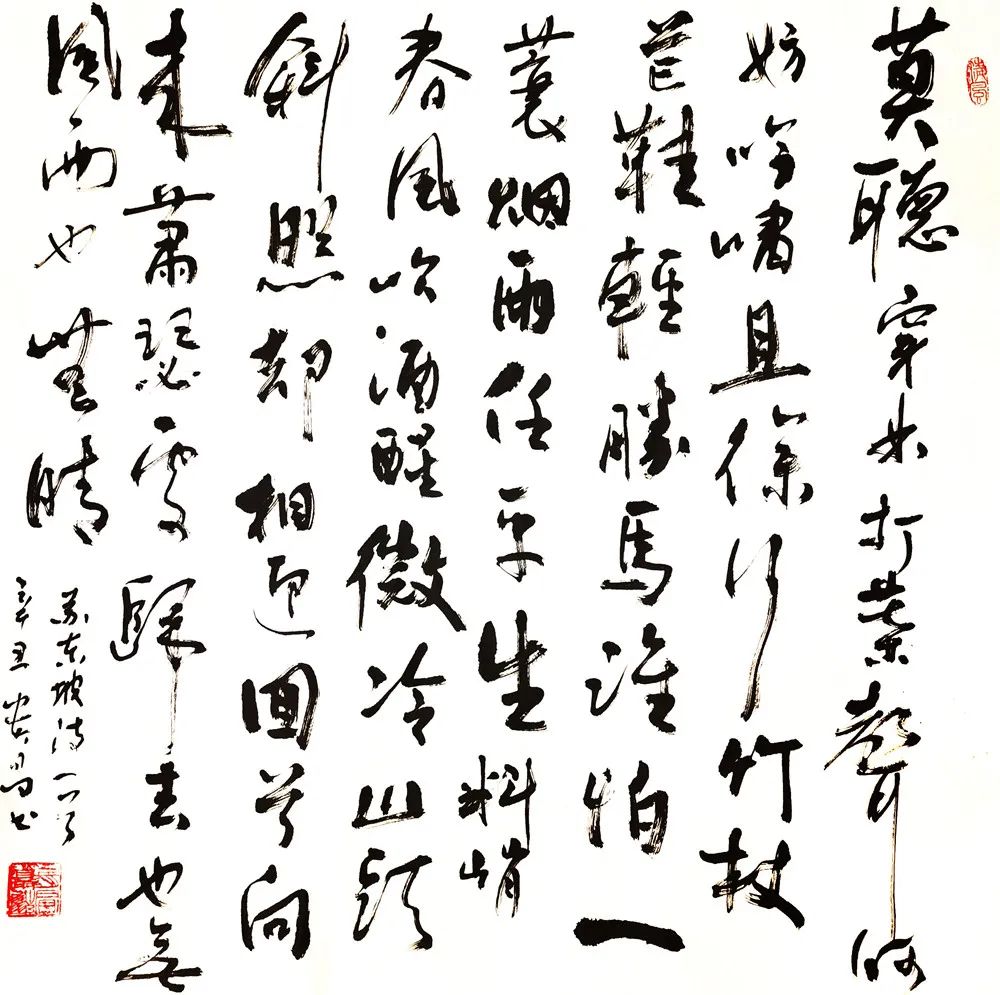 莫聽穿林打葉聲何
妨吟嘯且徐行竹杖
芒鞋輕勝馬誰怕一
蓑烟雨任平生料峭
春風吹酒醒微冷山頭
斜照却相迎回首向
来蕭瑟處歸去也無
風雨也無晴
苏东坡诗一首
辛丑 昌书